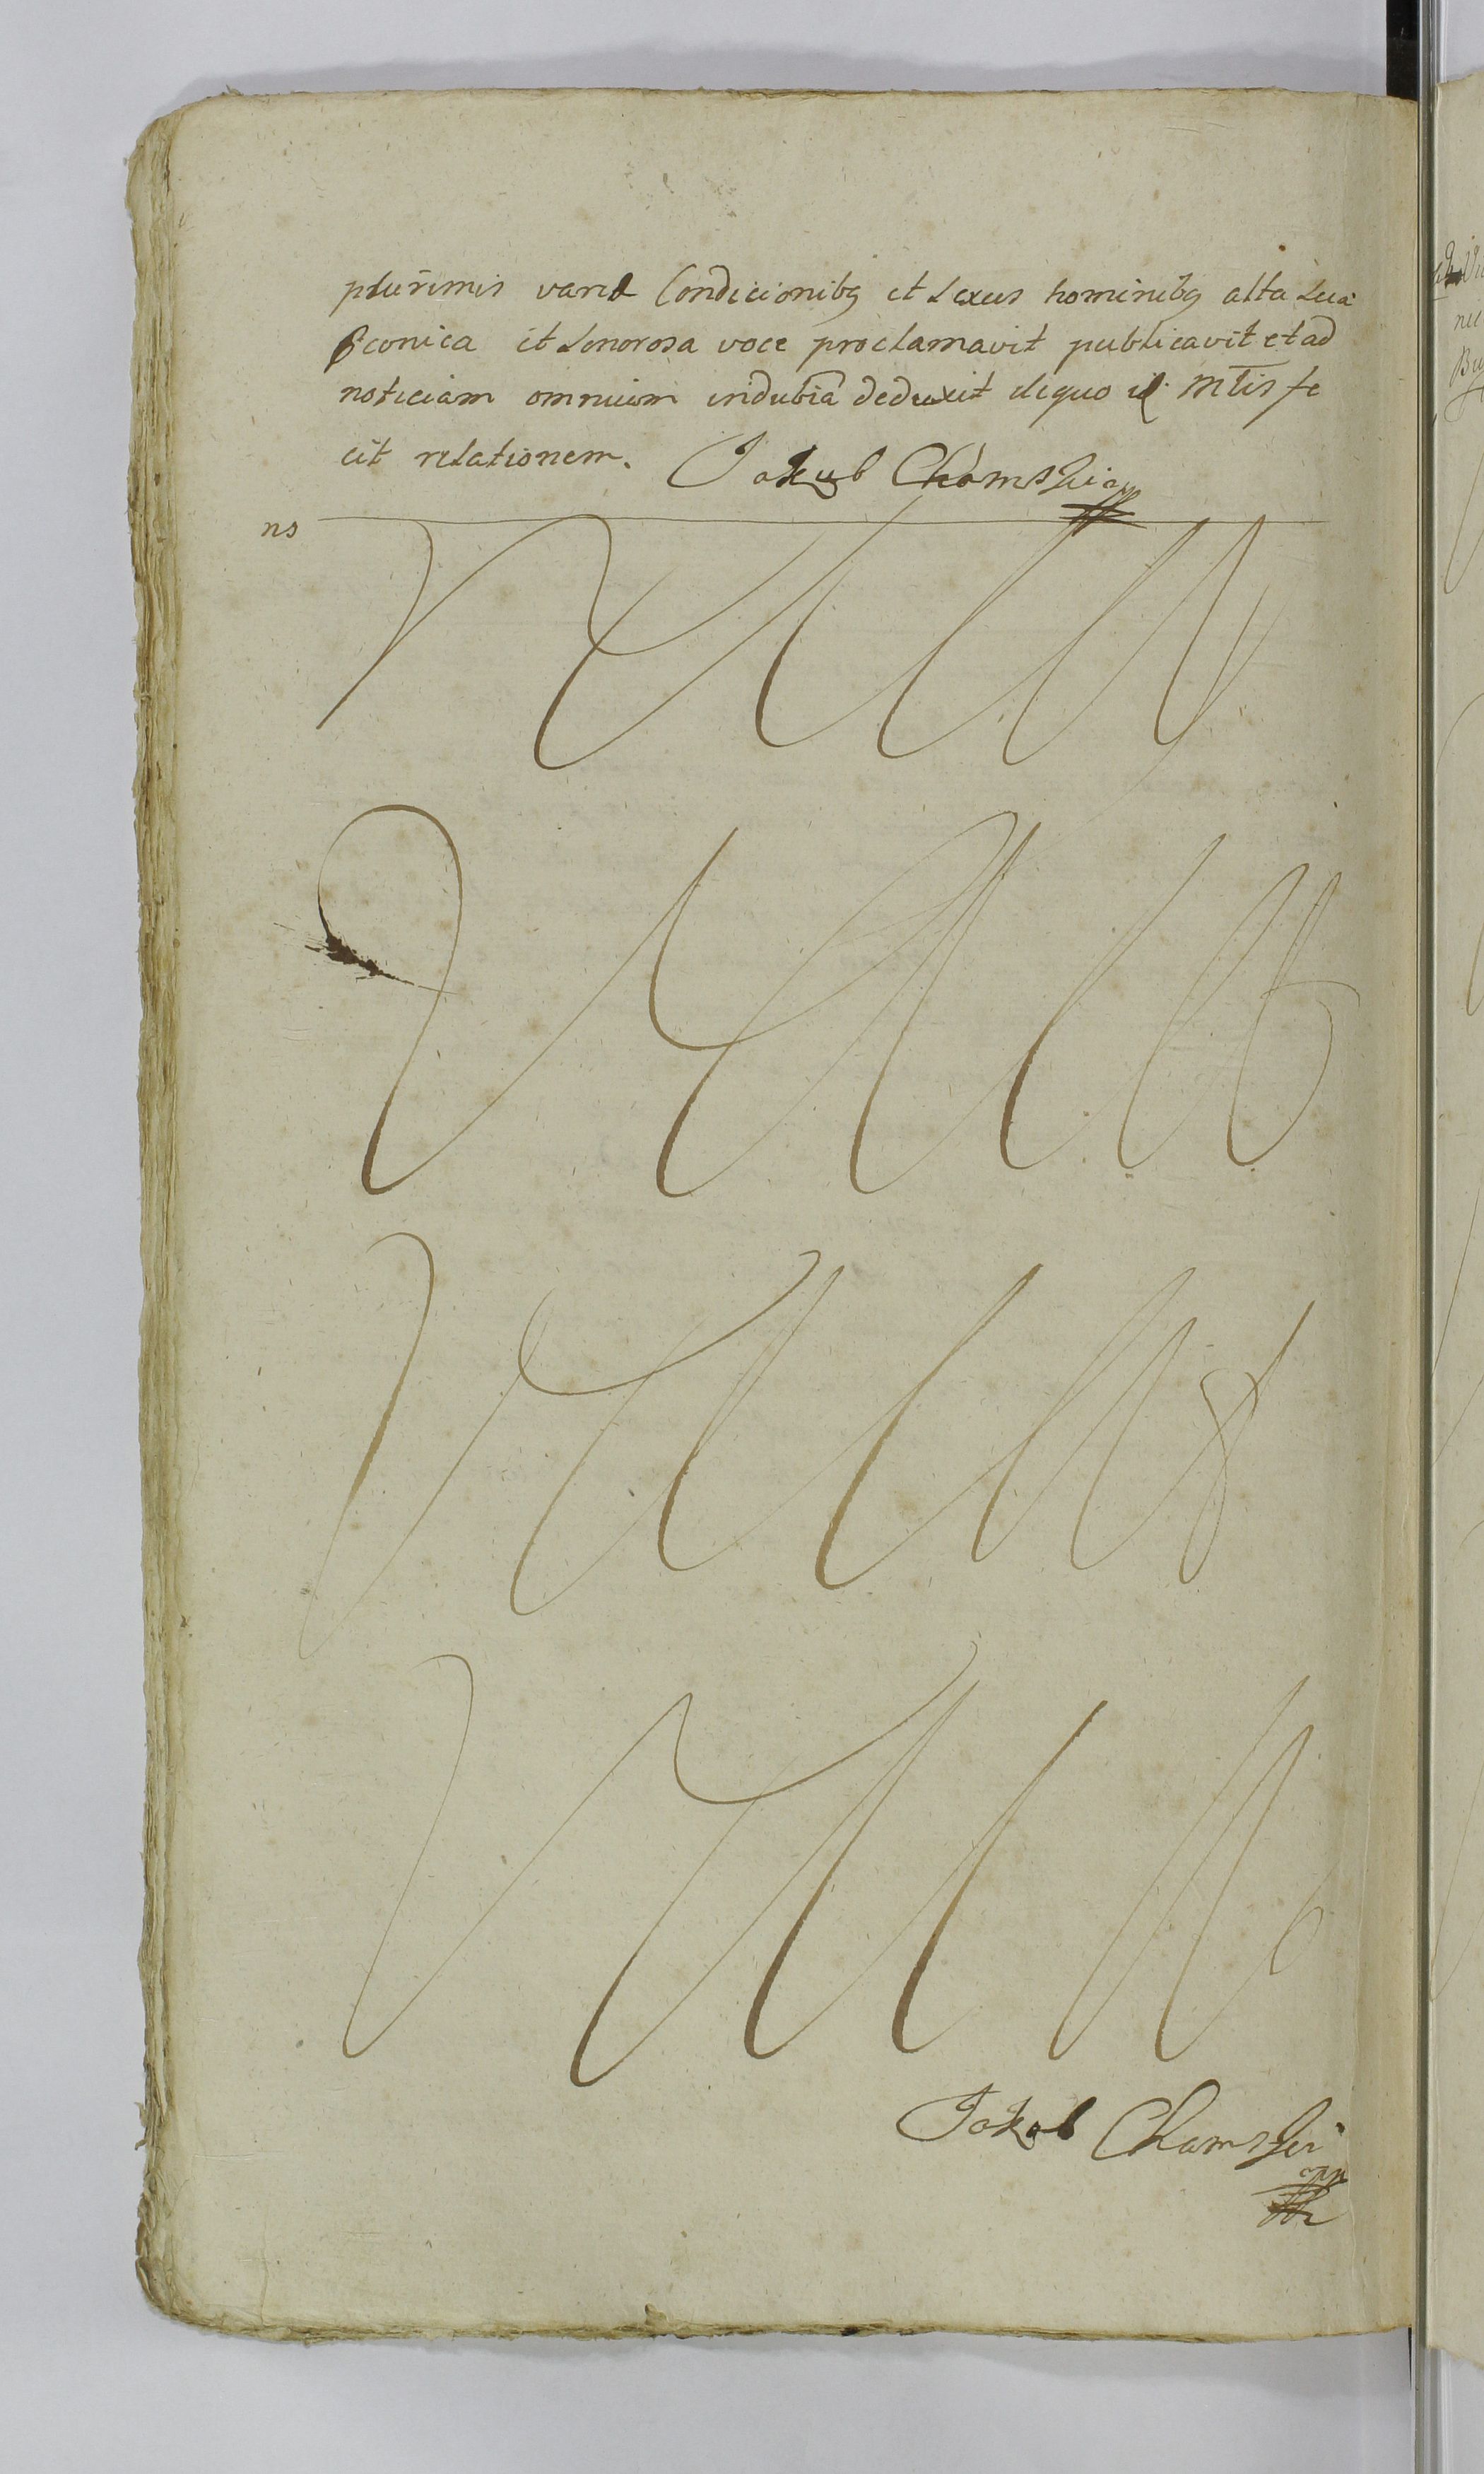 plurimis variæ Condicionibg et Sexus hominibg alta Sua
Sconica et Sonorosa voce proclamavit publicavit et ad
noticiam omnium indubia deduxit de quo id Mtis fe
cit relationem. Jakub Chamski
ns
Jakob Chamski